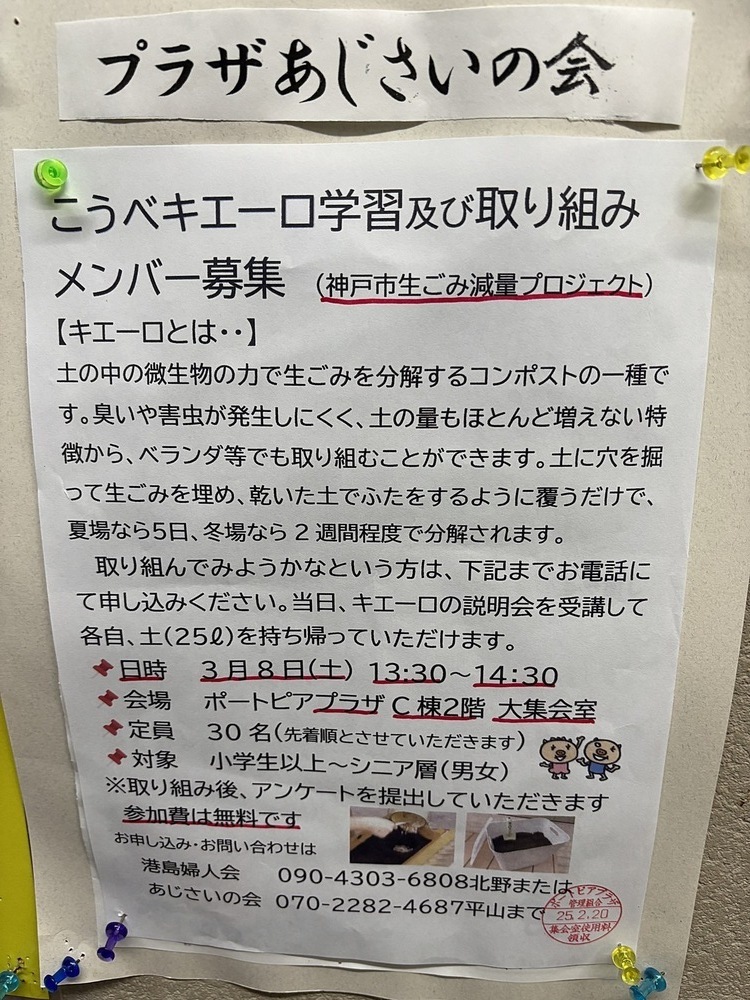 プラザあじさいの会
こうべキエーロ学習及び取り組み
メンバー募集 (神戸市生ごみ減量プロジェクト)
【キエーロとは‥】
土の中の微生物の力で生ごみを分解するコンポストの一種で
す。臭いや害虫が発生しにくく、土の量もほとんど増えない特
徴から、ベランダ等でも取り組むことができます。土に穴を掘
って生ごみを埋め、乾いた土でふたをするように覆うだけで、
夏場なら5日、冬場なら2週間程度で分解されます。
取り組んでみようかなという方は、下記までお電話に
て申し込みください。当日、キエーロの説明会を受講して
各自、土(25ℓ)を持ち帰っていただけます。
日時 3月8日(土) 13:30~14:30
会場 ポートピアプラザ C棟2階 大集会室
定員 30名(先着順とさせていただきます)
対象 小学生以上~シニア層(男女)
※取り組み後、アンケートを提出していただきます
参加費は無料です
お申し込み・お問い合わせは
港島婦人会 090-4303-6808北野または
あじさいの会 070-2282-4687平山まで
ポートピアプラザ
管理組合
25.2.20
集会室使用料
領収